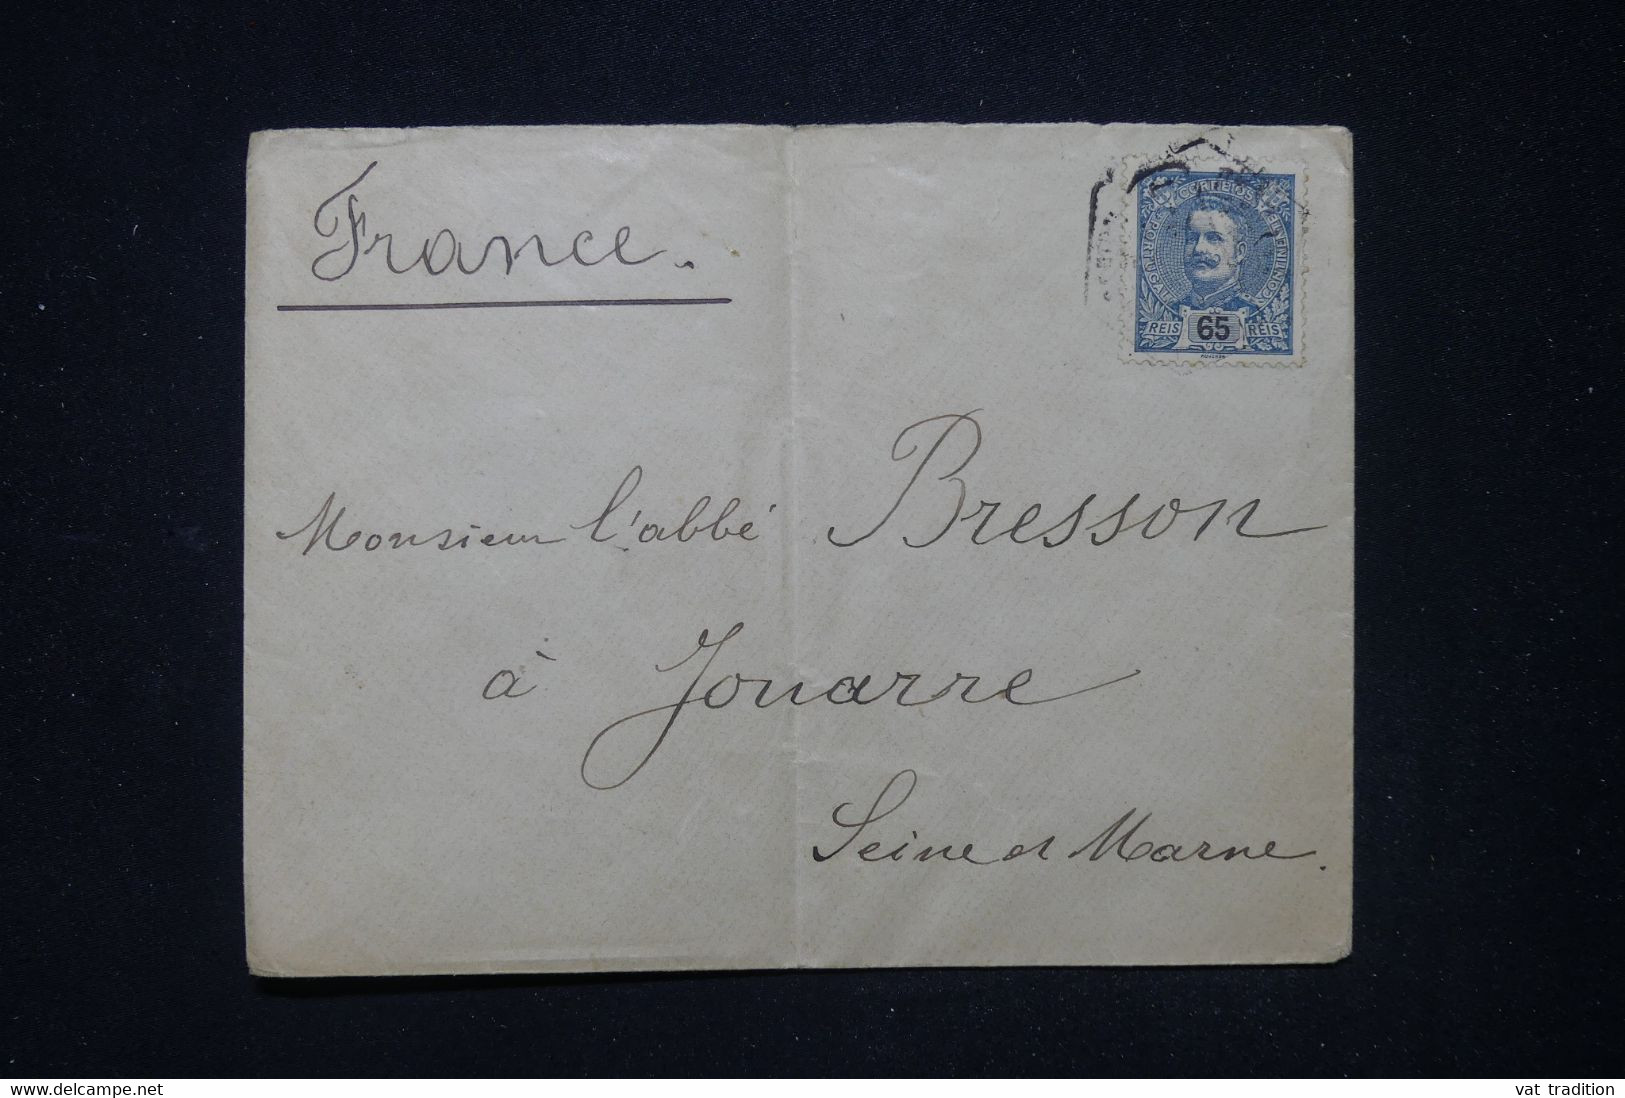 France.
CORREIOS
PORTUGAL
E CONTINENTE
REIS 65 REIS
Monsieur l'abbé Bresson
à Jouarre
Seine et Marne.
www.delcampe.net
vat tradition